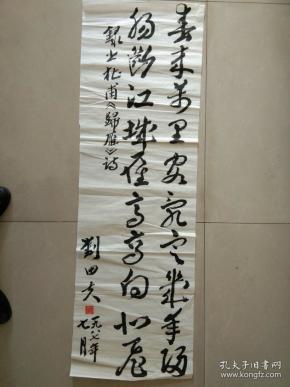 春来万里客乱定几年归
肠断江城雁高高向北飞
录之杜甫《归雁》诗
劉田夫
一九八七年
七月
孔夫子旧书网